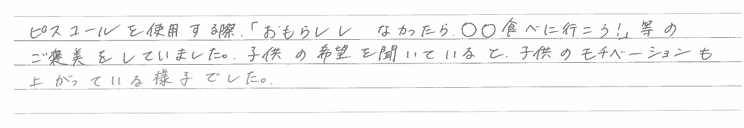 ピスコールを使用する際、「おもらしし なかったら、〇〇食べに行こう!」等の
ご褒美をしていました。子供の希望を聞いていると、子供のモチベーションも
上がっている様子でした。